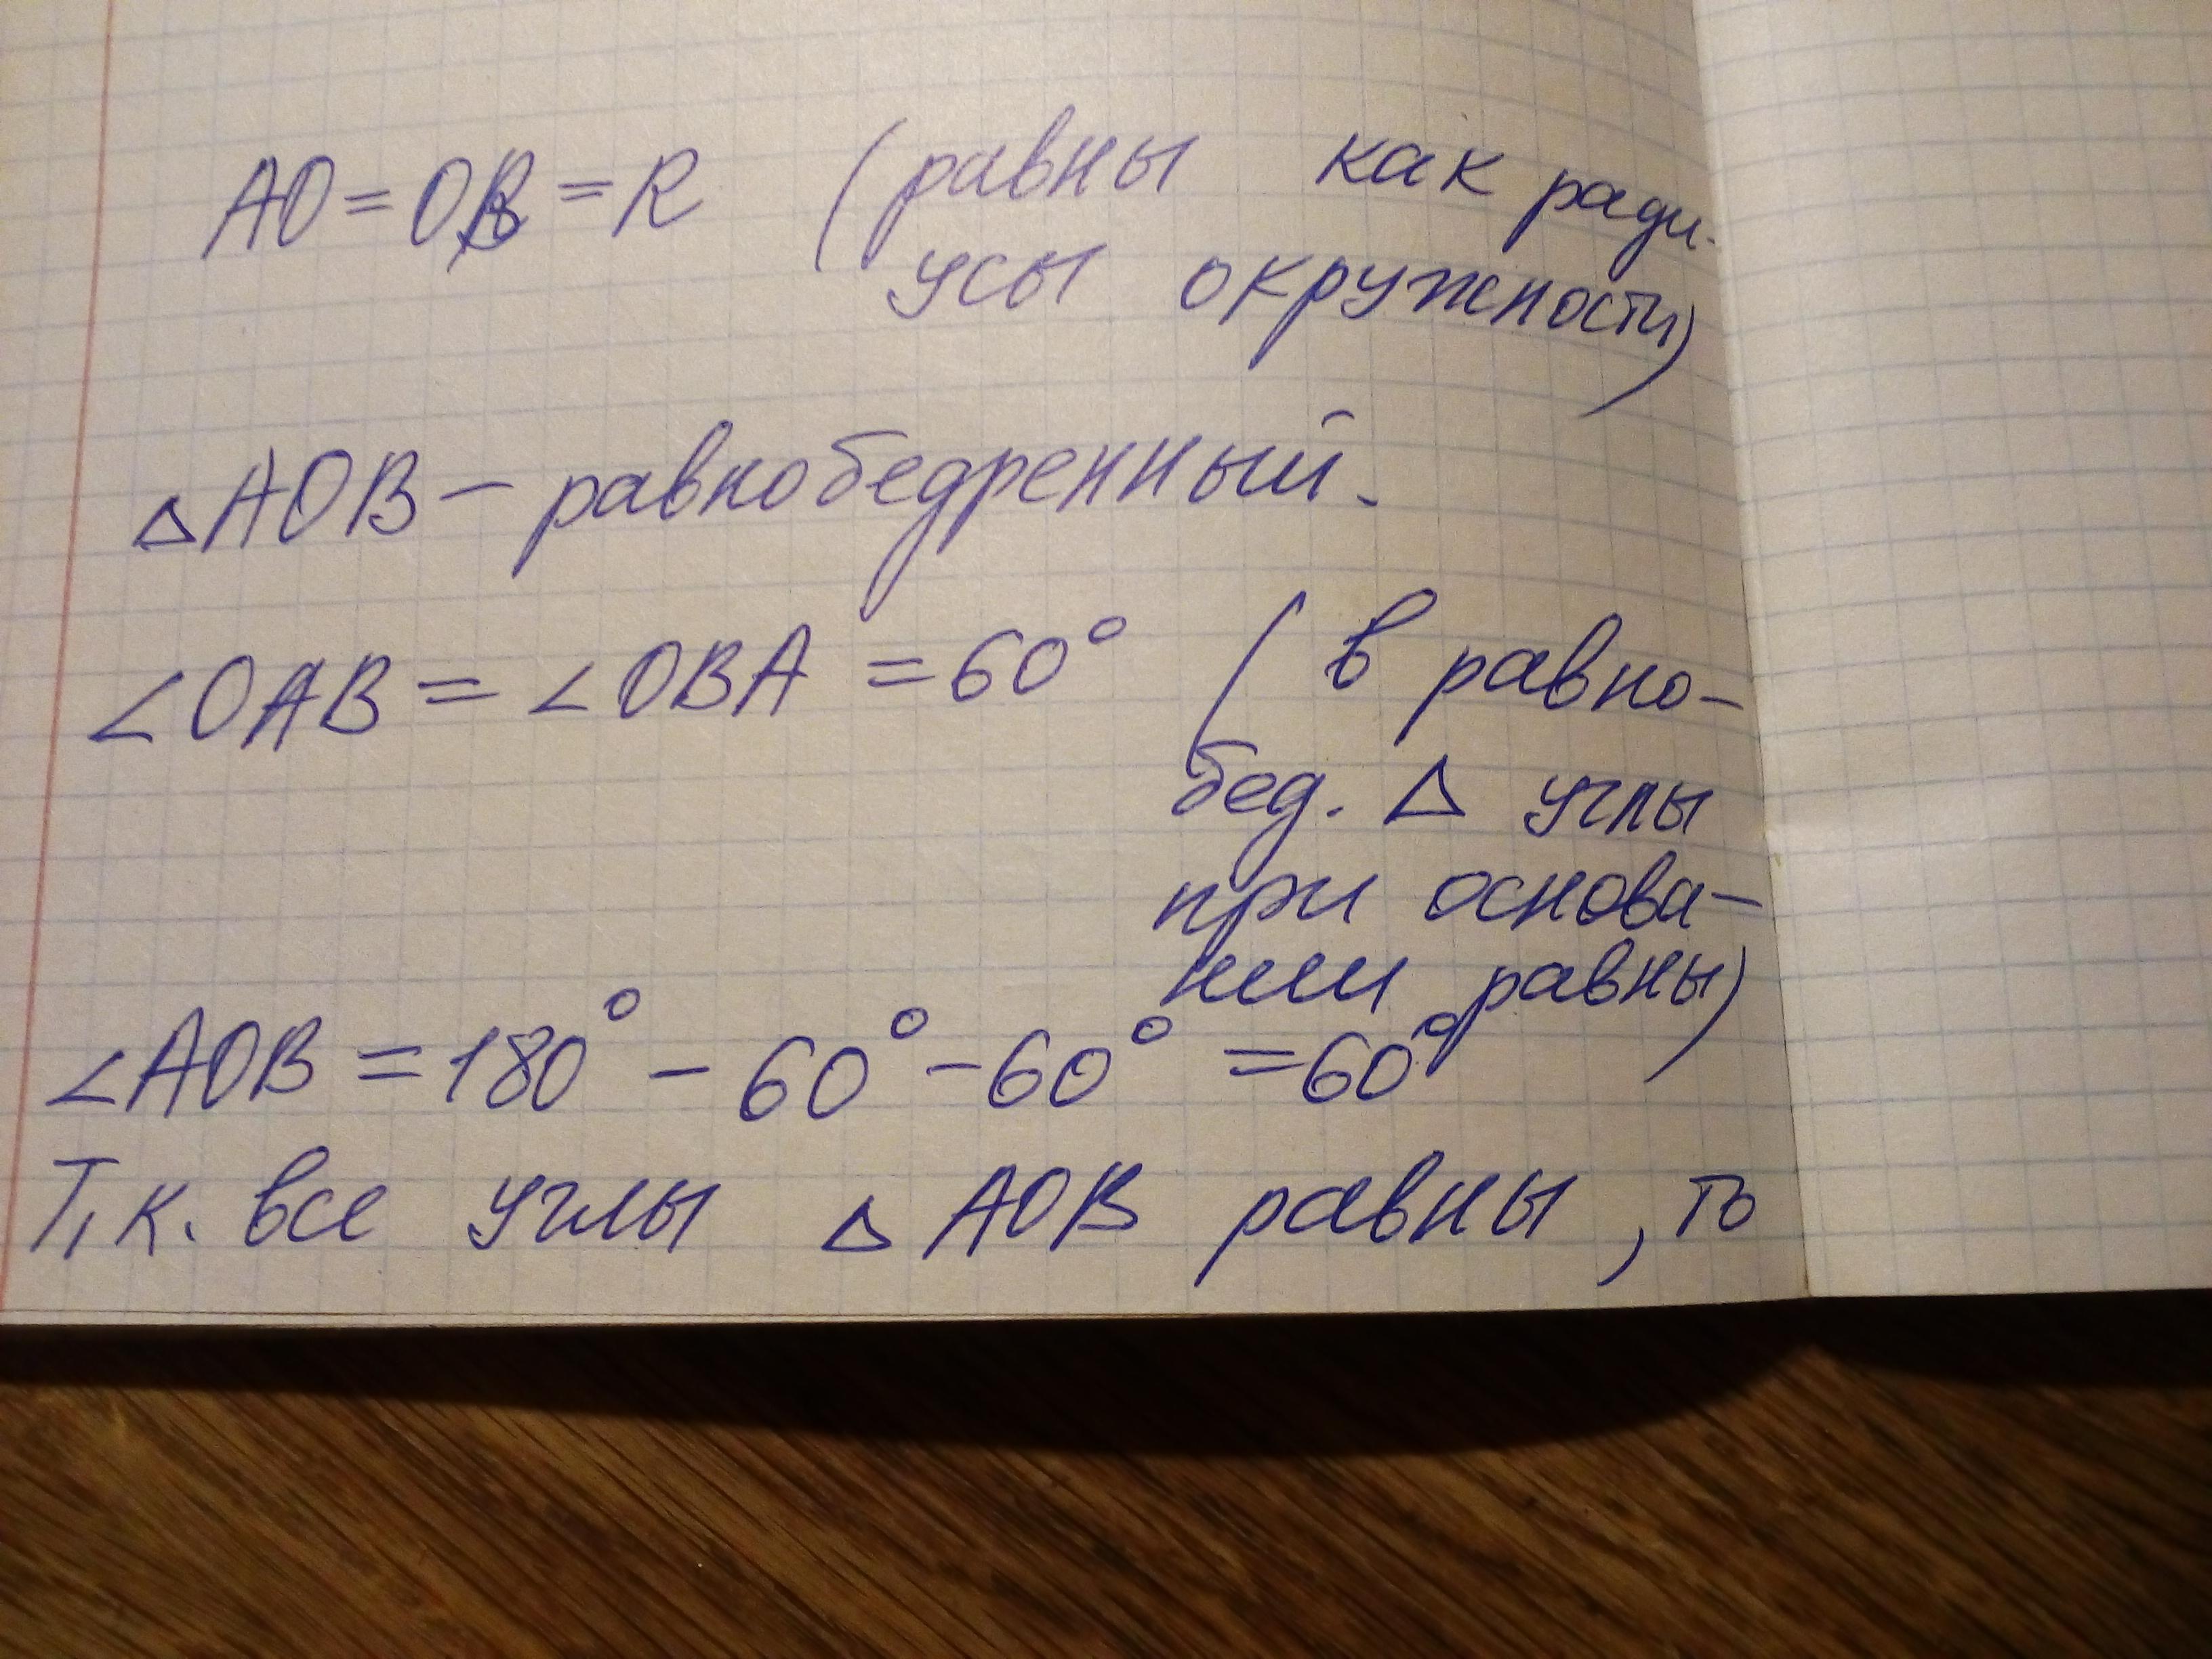 AO = OB = R (равны как ради-
усы окружности)
△AOB – равнобедренный.
∠OAB = ∠OBA = 60° (в равно-
бед. △ углы
при основа-
нии равны)
∠AOB = 180° – 60° – 60° = 60°
Т,к. все углы △ AOB равны, то